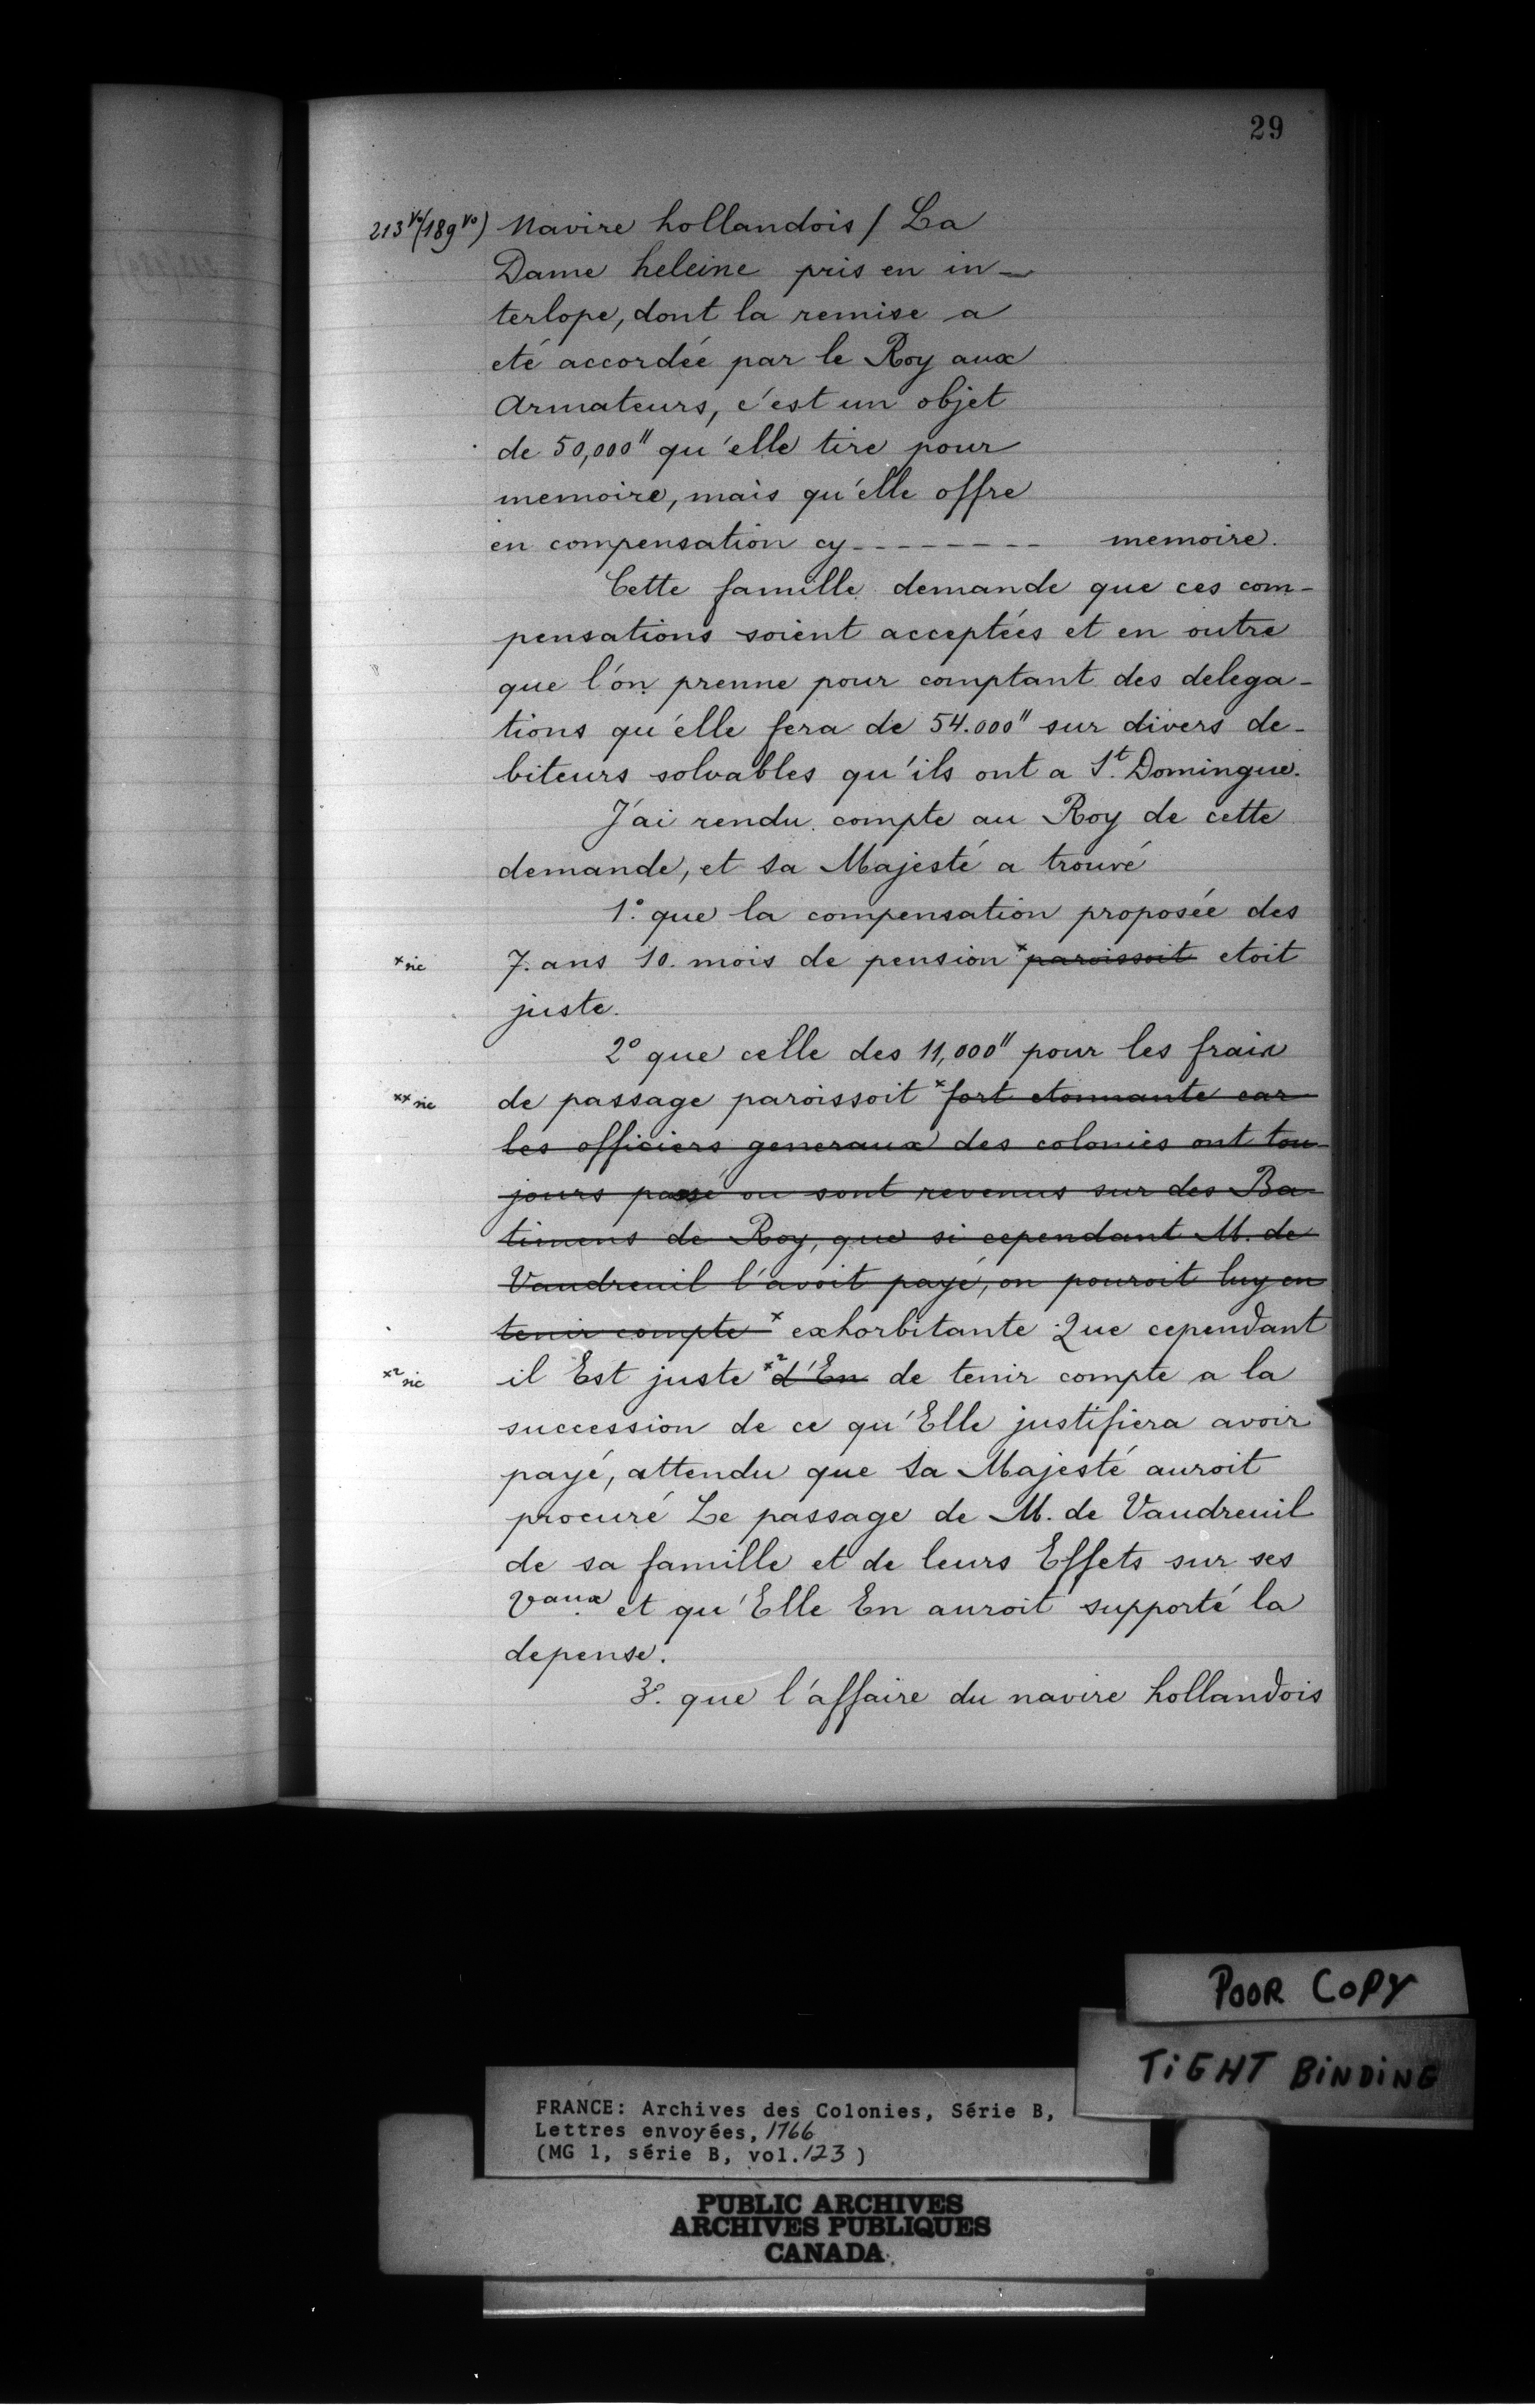 29
213 vo (189 vo) Navire hollandois / La
Dame heleine pris en in-
terlope, dont la remise a
eté accordée par le Roy aux
Armateurs, c'est un objet
de 50,000" qu'elle tire pour
memoire, mais qu'elle offre
en compensation cy - - - - - - - - memoire.
Cette famille demande que ces com-
pensations soient acceptées et en outre
que l'on prenne pour comptant des delega-
tions qu'elle fera de 54.000" sur divers de-
biteurs solvables qu'ils ont a St. Domingue.
J'ai rendu compte au Roy de cette
demande, et Sa Majesté a trouvé
1.° que la compensation proposée des
x sic 7. ans 10. mois de pension x paroissoit etoit
juste.
2° que celle des 11,000" pour les frais
xx sic de passage paroissoit x fort etonnante car
les officiers generaux des colonies ont tou-
jours passé ou sont revenus sur des Ba-
timens de Roy, que si cependant M. de
Vaudreuil l'avoit payé, on pouroit luy en
tenir compte x exhorbitante Que cependant
x2 sic il Est juste x2 d'En de tenir compte a la
succession de ce qu'Elle justifiera avoir
payé, attendu que Sa Majesté auroit
procuré Le passage de M. de Vaudreuil
de sa famille et de leurs Effets sur ses
Vaux et qu'Elle En auroit supporté la
depense.
3°. que l'affaire du navire hollandois
POOR COPY
TIGHT BINDING
FRANCE: Archives des Colonies, Série B,
Lettres envoyées, 1766
(MG 1, série B, vol. 123)
PUBLIC ARCHIVES
ARCHIVES PUBLIQUES
CANADA